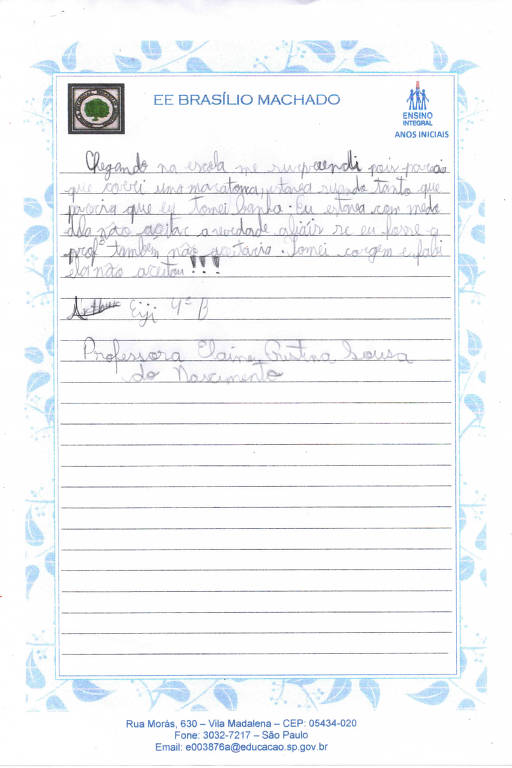 EE BRASÍLIO MACHADO
ENSINO
INTEGRAL
ANOS INICIAIS
Chegando na escola me surpreendi pois parecia
que correi uma maratona, estava suando tanto que
parecia que eu tomei banho. Eu estava com medo
dela não aceitar a verdade afinal se eu fosse a
profª também não aceitaria. Tomei coragem e falei
ela não aceitou!!!
Arthur Eiji 4º B
Professora Elaine Cristina Sousa
do Nascimento
Rua Morás, 630 – Vila Madalena – CEP: 05434-020
Fone: 3032-7217 – São Paulo
Email: e003876a@educacao.sp.gov.br